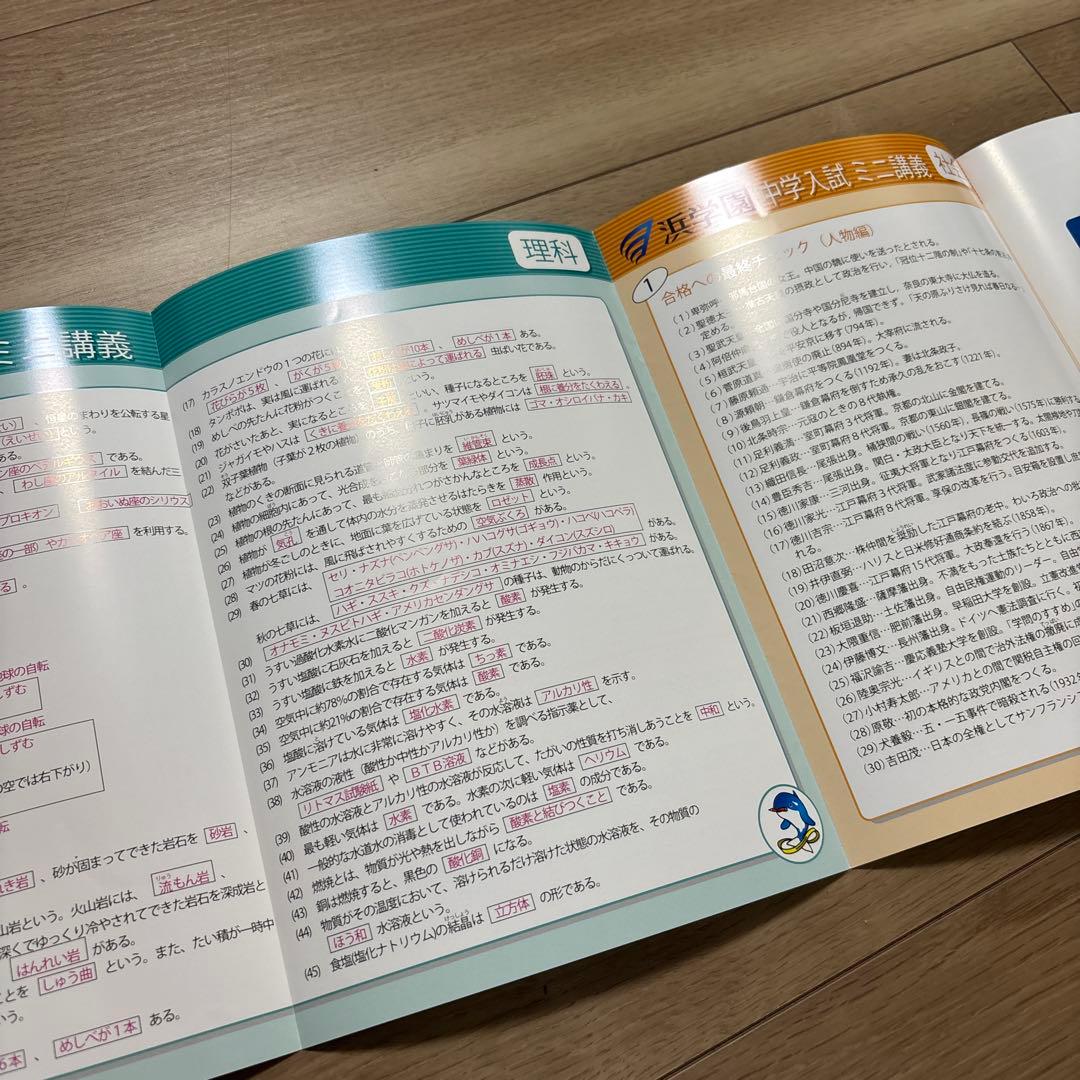 ミニ講義
恒星のまわりを公転する星
という。
である。
わし座のアルタイル を結んだ三
プロキオン 、 おおいぬ座のシリウス
を利用する。
球の自転
しずむ
球の自転
しずむ
の空では右下がり)
れき岩 、砂が固まってできた岩石を 砂岩 、
山岩という。火山岩には、 流もん岩 、
深くでゆっくり冷やされてできた岩石を深成岩と
はんれい岩 がある。
ことを しゅう曲 という。また、たい積が一時中
いう。
、 めしべが1本 ある。
理科
(17) カラスノエンドウの1つの花には、 花びらが5枚 、 がくが5 、 10本 、 めしべが1本 ある。
(18) タンポポは、実は風に運ばれる によって運ばれる 虫ばい花である。
(19) めしべの先たんに花粉がつくことを という。
(20) 花がさいたあと、実になるところを いい、種子になるところを 胚珠 という。
(21) ジャガイモやハスは くきに養分をたくわえる 。サツマイモやダイコンは 根に養分をたくわえる 。
(22) 双子葉植物(子葉が2枚の植物)のうち、種子に胚乳がある植物には ゴマ・オシロイバナ・カキ などがある。
(23) 植物のくきの断面に見られる道管と師管の集まりを 維管束 という。
(24) 植物の細胞内にあって、光合成を 部分を 葉緑体 という。
(25) 植物の根の先たんにあって、最も細胞分れつがさかんなところを 成長点 という。
(26) 植物が 気孔 を通して体内の水分を蒸発させるはたらきを 蒸散 作用という。
(27) 植物が冬ごしのときに、地面に葉を広げている状態を ロゼット という。
(28) マツの花粉には、風に飛ばされやすくするための 空気ぶくろ がある。
(29) 春の七草には、 セリ・ナズナ(ペンペングサ)・ハハコグサ(ゴギョウ)・ハコベ(ハコベラ)
コオニタビラコ(ホトケノザ)・カブ(スズナ)・ダイコン(スズシロ) がある。
秋の七草には、 ハギ・ススキ・クズ・ナデシコ・オミナエシ・フジバカマ・キキョウ がある。
(30) オナモミ・ヌスビトハギ・アメリカセンダングサ の種子は、動物のからだにくっついて運ばれる。
(31) うすい過酸化水素水に二酸化マンガンを加えると 酸素 が発生する。
(32) うすい塩酸に石灰石を加えると 二酸化炭素 が発生する。
(33) うすい塩酸に鉄を加えると 水素 が発生する。
(34) 空気中に約78%の割合で存在する気体は ちっ素 である。
(35) 空気中に約21%の割合で存在する気体は 酸素 である。
(36) 塩酸に溶けている気体は 塩化水素 である。
(37) アンモニアは水に非常に溶けやすく、その水溶液は アルカリ性 を示す。
(38) 水溶液の液性(酸性か中性かアルカリ性か)を調べる指示薬として、
リトマス試験紙 や BTB溶液 などがある。
(39) 酸性の水溶液とアルカリ性の水溶液が反応して、たがいの性質を打ち消しあうことを 中和 という。
(40) 最も軽い気体は 水素 である。水素の次に軽い気体は ヘリウム である。
(41) 一般的な水道水の消毒として使われているのは 塩素 の成分である。
(42) 燃焼とは、物質が光や熱を出しながら 酸素と結びつくこと である。
(43) 銅は燃焼すると、黒色の 酸化銅 になる。
(44) 物質がその温度において、溶けられるだけ溶けた状態の水溶液を、その物質の
ほう和 水溶液という。
(45) 食塩(塩化ナトリウム)の結晶は 立方体 の形である。
浜学園 中学入試 ミニ講義
1 合格への最終チェック (人物編)
(1) 卑弥呼… 邪馬台国の女王。中国の魏に使いを送ったとされる。
(2) 聖徳太 推古天 の摂政として政治を行い、「冠位十二階の制」や「十七条の
定める。
(3) 聖武天皇 全国に国分寺や国分尼寺を建立し、奈良の東大寺に大仏を造る。
(4) 阿倍仲麻 役人となるが、帰国できず。「天の原ふりさけ見れば春日なる…」
(5) 桓武天皇 平安京に移す(794年)。
(6) 菅原道真 遣唐使の廃止(894年)。太宰府に流される。
(7) 藤原頼通…宇治に平等院鳳凰堂をつくる。
(8) 源頼朝…鎌倉幕府をつくる(1192年)。妻は北条政子。
(9) 後鳥羽上皇…鎌倉幕府を倒すため承久の乱をおこす(1221年)。
(10) 北条時宗…元寇のときの8代執権。
(11) 足利義満…室町幕府3代将軍。京都の北山に金閣を建てる。
(12) 足利義政…室町幕府8代将軍。京都の東山に銀閣を建てる。
(13) 織田信長…尾張出身。桶狭間の戦い(1560年)、長篠の戦い(1575年)に勝利する
(14) 豊臣秀吉…尾張出身。関白・太政大臣となり天下を統一する。太閤検地や
(15) 徳川家康…三河出身。征夷大将軍となり江戸幕府をつくる(1603年)。
(16) 徳川家光…江戸幕府3代将軍。武家諸法度に参勤交代を追加する。
(17) 徳川吉宗…江戸幕府8代将軍。享保の改革を行う。目安箱を設置し
れる。
(18) 田沼意次…株仲間を奨励した江戸幕府の老中。わいろ政治への
(19) 井伊直弼…ハリスと日米修好通商条約を結ぶ(1858年)。
(20) 徳川慶喜…江戸幕府15代将軍。大政奉還を行う(1867年)。
(21) 西郷隆盛…薩摩藩出身。不満をもった士族たちとともに西
(22) 板垣退助…土佐藩出身。自由民権運動のリーダー。自由
(23) 大隈重信…肥前藩出身。早稲田大学を創設。立憲改進
(24) 伊藤博文…長州藩出身。ドイツへ憲法調査に行く。初
(25) 福沢諭吉…慶応義塾大学を創設。「学問のすすめ」の
(26) 陸奥宗光…イギリスとの間で治外法権の撤廃に成
(27) 小村寿太郎…アメリカとの間で関税自主権の回
(28) 原敬…初の本格的な政党内閣をつくる。
(29) 犬養毅…五・一五事件で暗殺される(1932年
(30) 吉田茂…日本の全権としてサンフランシ